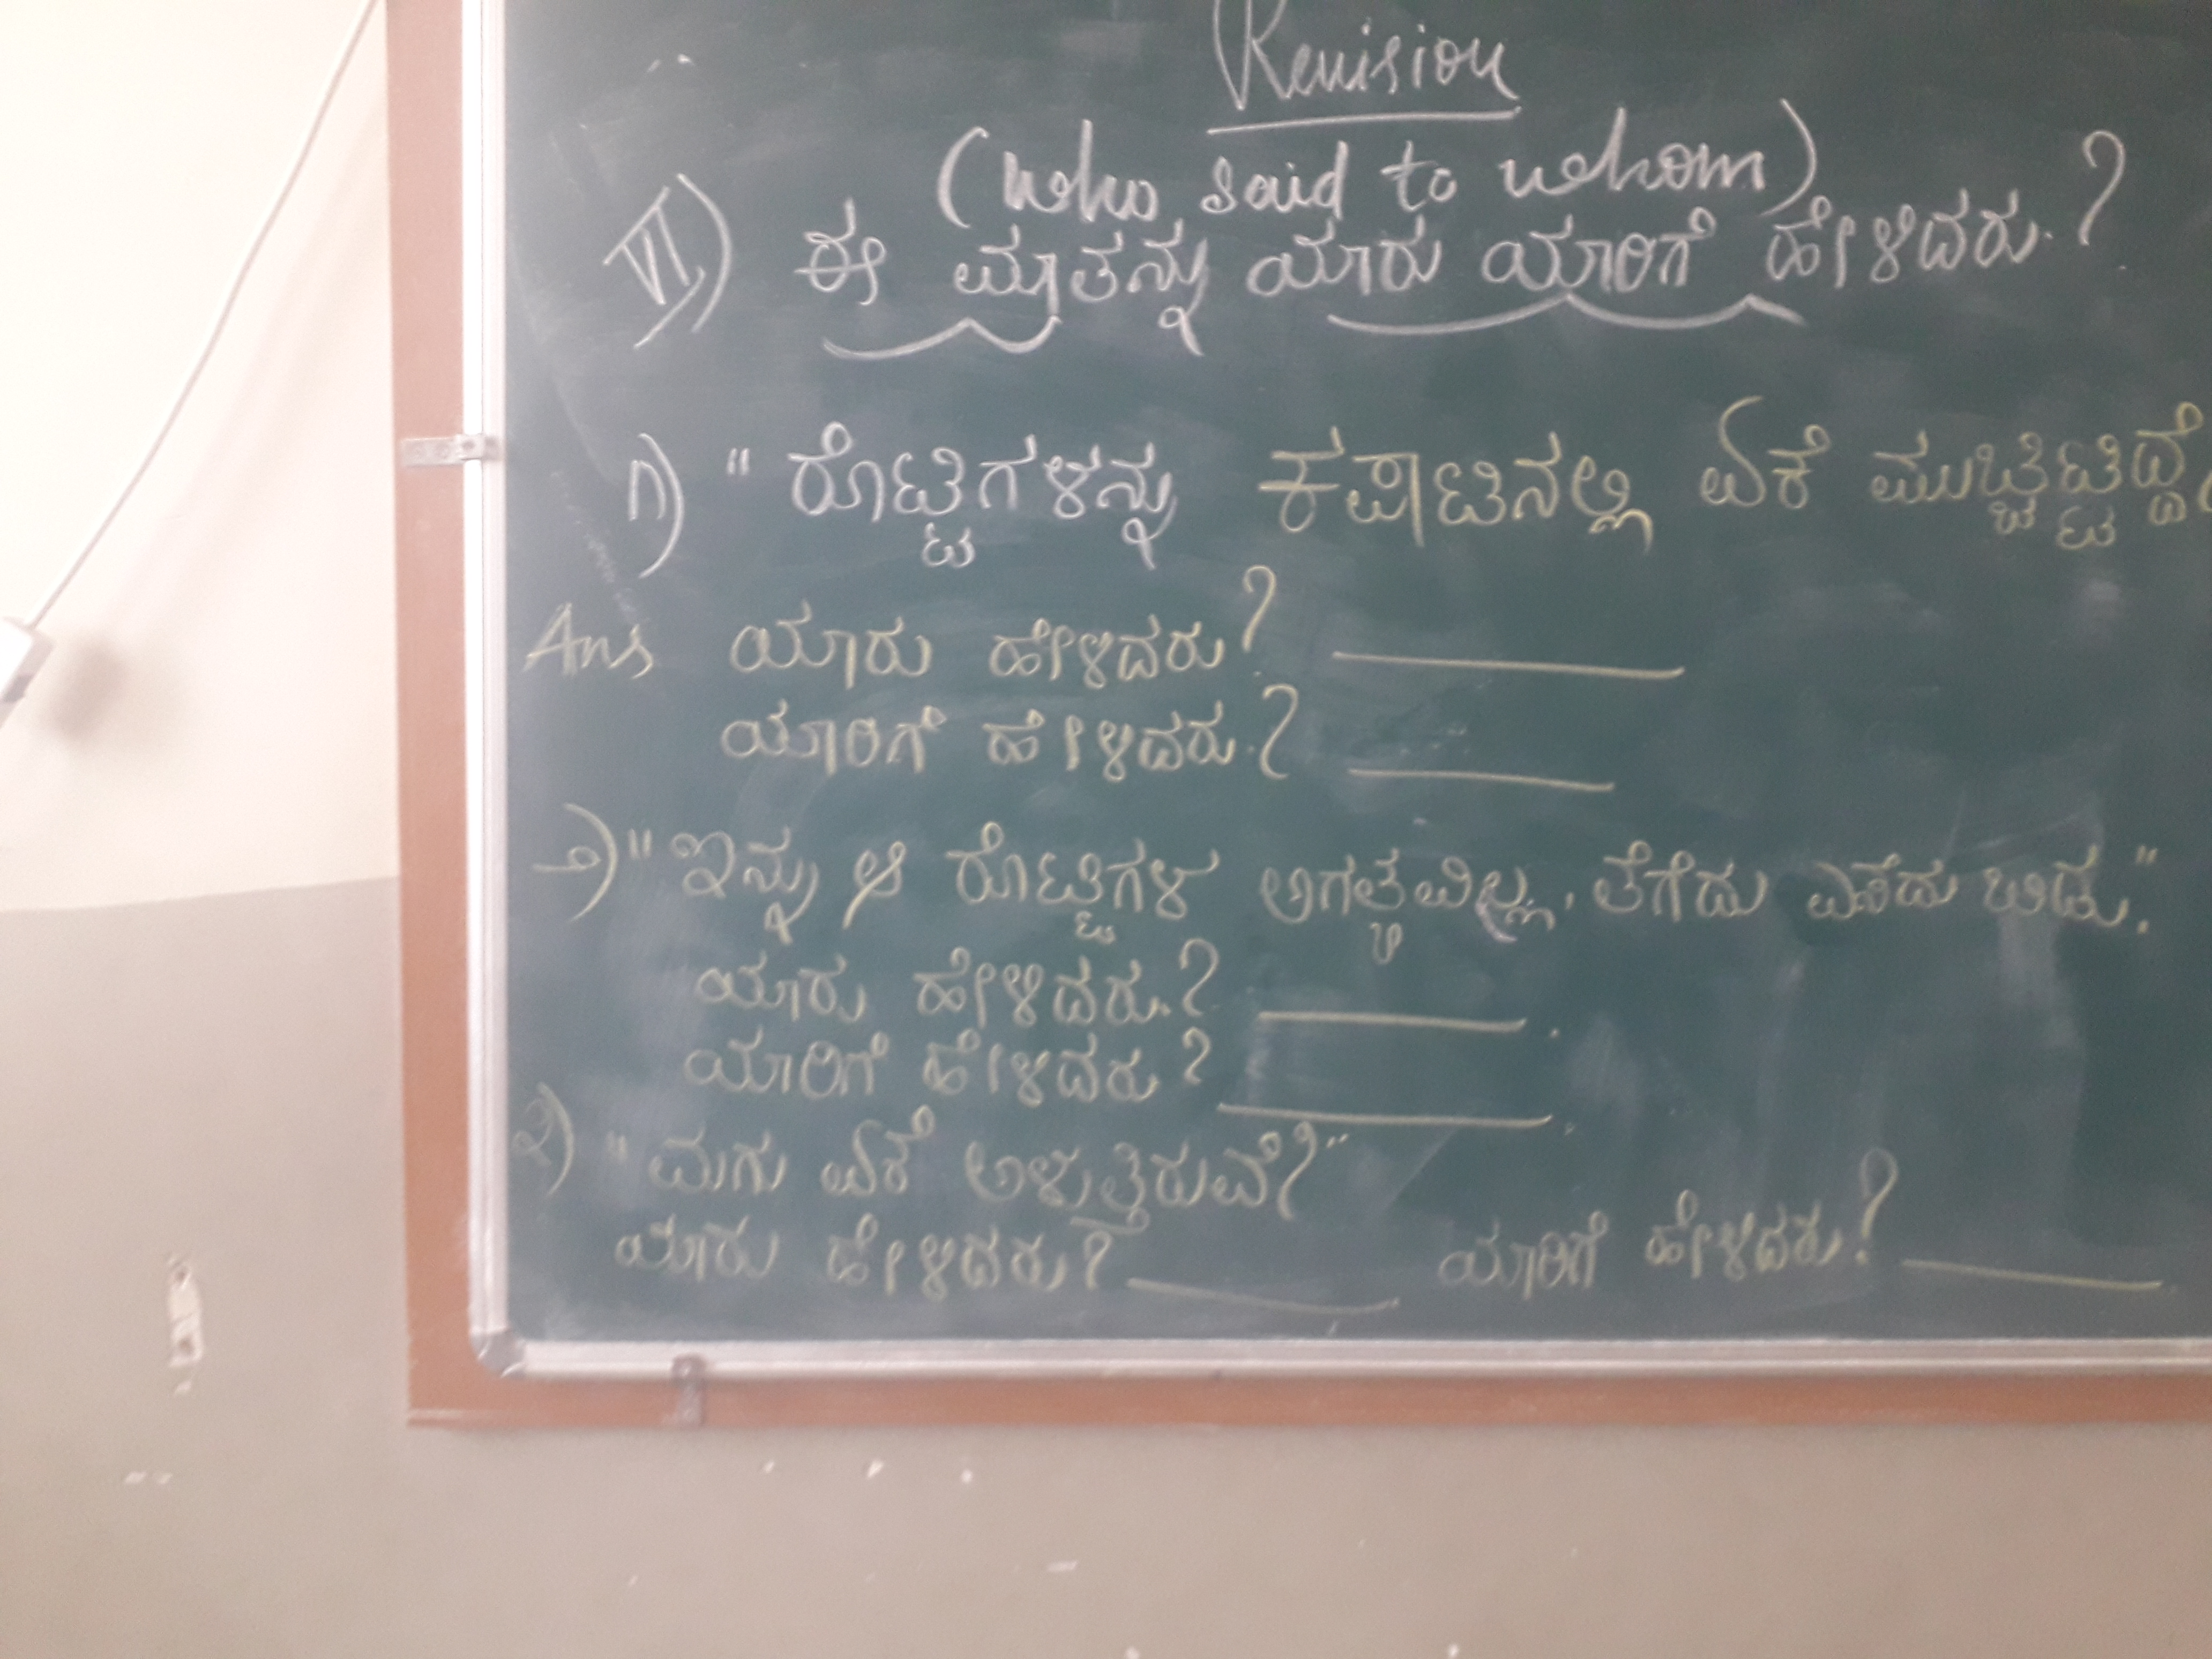 Revision
(who said to whom)
VI) ಈ ಮಾತನ್ನು ಯಾರು ಯಾರಿಗೆ ಹೇಳಿದರು.?
೧) "ರೊಟ್ಟಿಗಳನ್ನು ಕಪಾಟಿನಲ್ಲಿ ಏಕೆ ಮುಚ್ಚಿಟ್ಟಿದ್ದೆ
Ans ಯಾರು ಹೇಳಿದರು? ______
ಯಾರಿಗೆ ಹೇಳಿದರು.? ______
೨) "ಇನ್ನು ಆ ರೊಟ್ಟಿಗಳ ಅಗತ್ಯವಿಲ್ಲ, ತೆಗೆದು ಎಸೆದು ಬಿಡು."
ಯಾರು ಹೇಳಿದರು.? ______.
ಯಾರಿಗೆ ಹೇಳಿದರು? ______.
೩) "ಮಗು ಏಕೆ ಅಳುತ್ತಿರುವೆ?"
ಯಾರು ಹೇಳಿದರು? ______ ಯಾರಿಗೆ ಹೇಳಿದರು? ______.